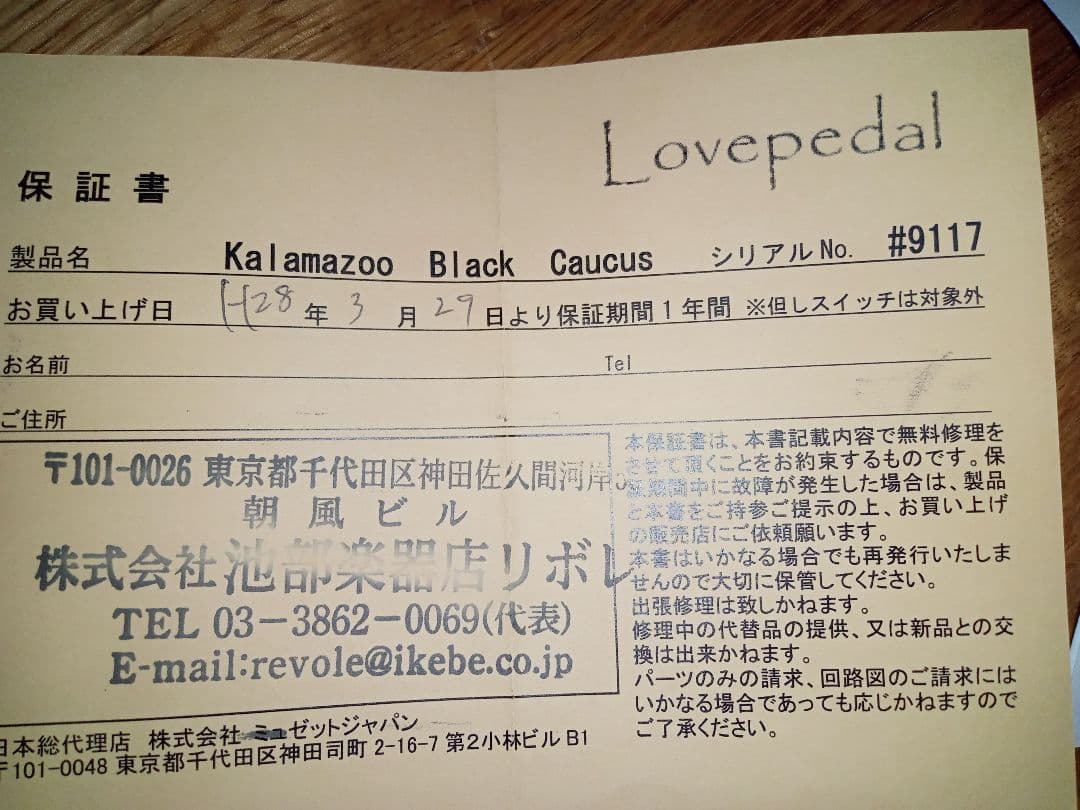 Lovepedal
保証書
製品名 Kalamazoo Black Caucus シリアルNo. #9117
お買い上げ日 H28年3月29日より保証期間1年間 ※但しスイッチは対象外
お名前 Tel
ご住所
〒101-0026 東京都千代田区神田佐久間河岸
朝風ビル
株式会社池部楽器店リボレ
TEL 03-3862-0069(代表)
E-mail:revole@ikebe.co.jp
本保証書は、本書記載内容で無料修理を
させて頂くことをお約束するものです。保
証期間中に故障が発生した場合は、製品
と本書をご持参ご提示の上、お買い上げ
の販売店にご依頼願います。
本書はいかなる場合でも再発行いたしま
せんので大切に保管してください。
出張修理は致しかねます。
修理中の代替品の提供、又は新品との交
換は出来かねます。
パーツのみの請求、回路図のご請求には
いかなる場合であっても応じかねますので
ご了承ください。
日本総代理店 株式会社ミュゼットジャパン
〒101-0048 東京都千代田区神田司町 2-16-7 第2小林ビル B1